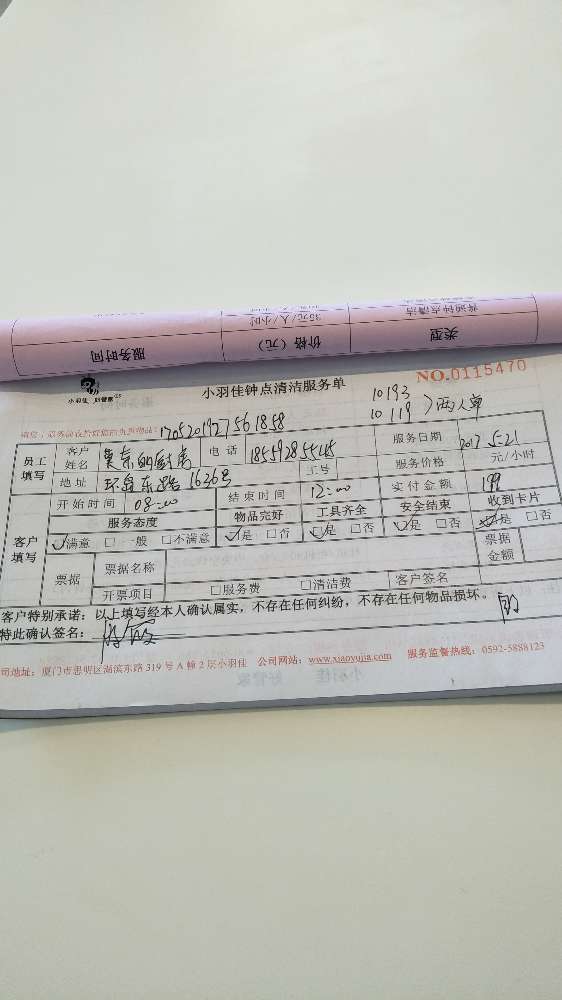 普通钟点清洁 35元/人/小时
类型 价格（元） 服务时间
小羽佳 好管家
小羽佳钟点清洁服务单
NO.0115470
10193
10119 〉两人单
1705201927561858
员工填写 客户姓名 莫奈的厨房 电话 18559285545 服务日期 2017 5-21
地址 环岛东路1636号 工号 服务价格 元/小时
开始时间 08:00 结束时间 12:00 实付金额 199
客户填写 服务态度 物品完好 工具齐全 安全结束 收到卡片
☑满意 □一般 □不满意 ☑是 □否 ☑是 □否 ☑是 □否 ☑是 □否
票据 票据名称 票据金额
开票项目 □服务费 □清洁费 客户签名
客户特别承诺：以上填写经本人确认属实，不存在任何纠纷，不存在任何物品损坏。
特此确认签名：
司地址：厦门市思明区湖滨东路319号A幢2层小羽佳 公司网站：www.xiaoyujia.com 服务监督热线：0592-5888123